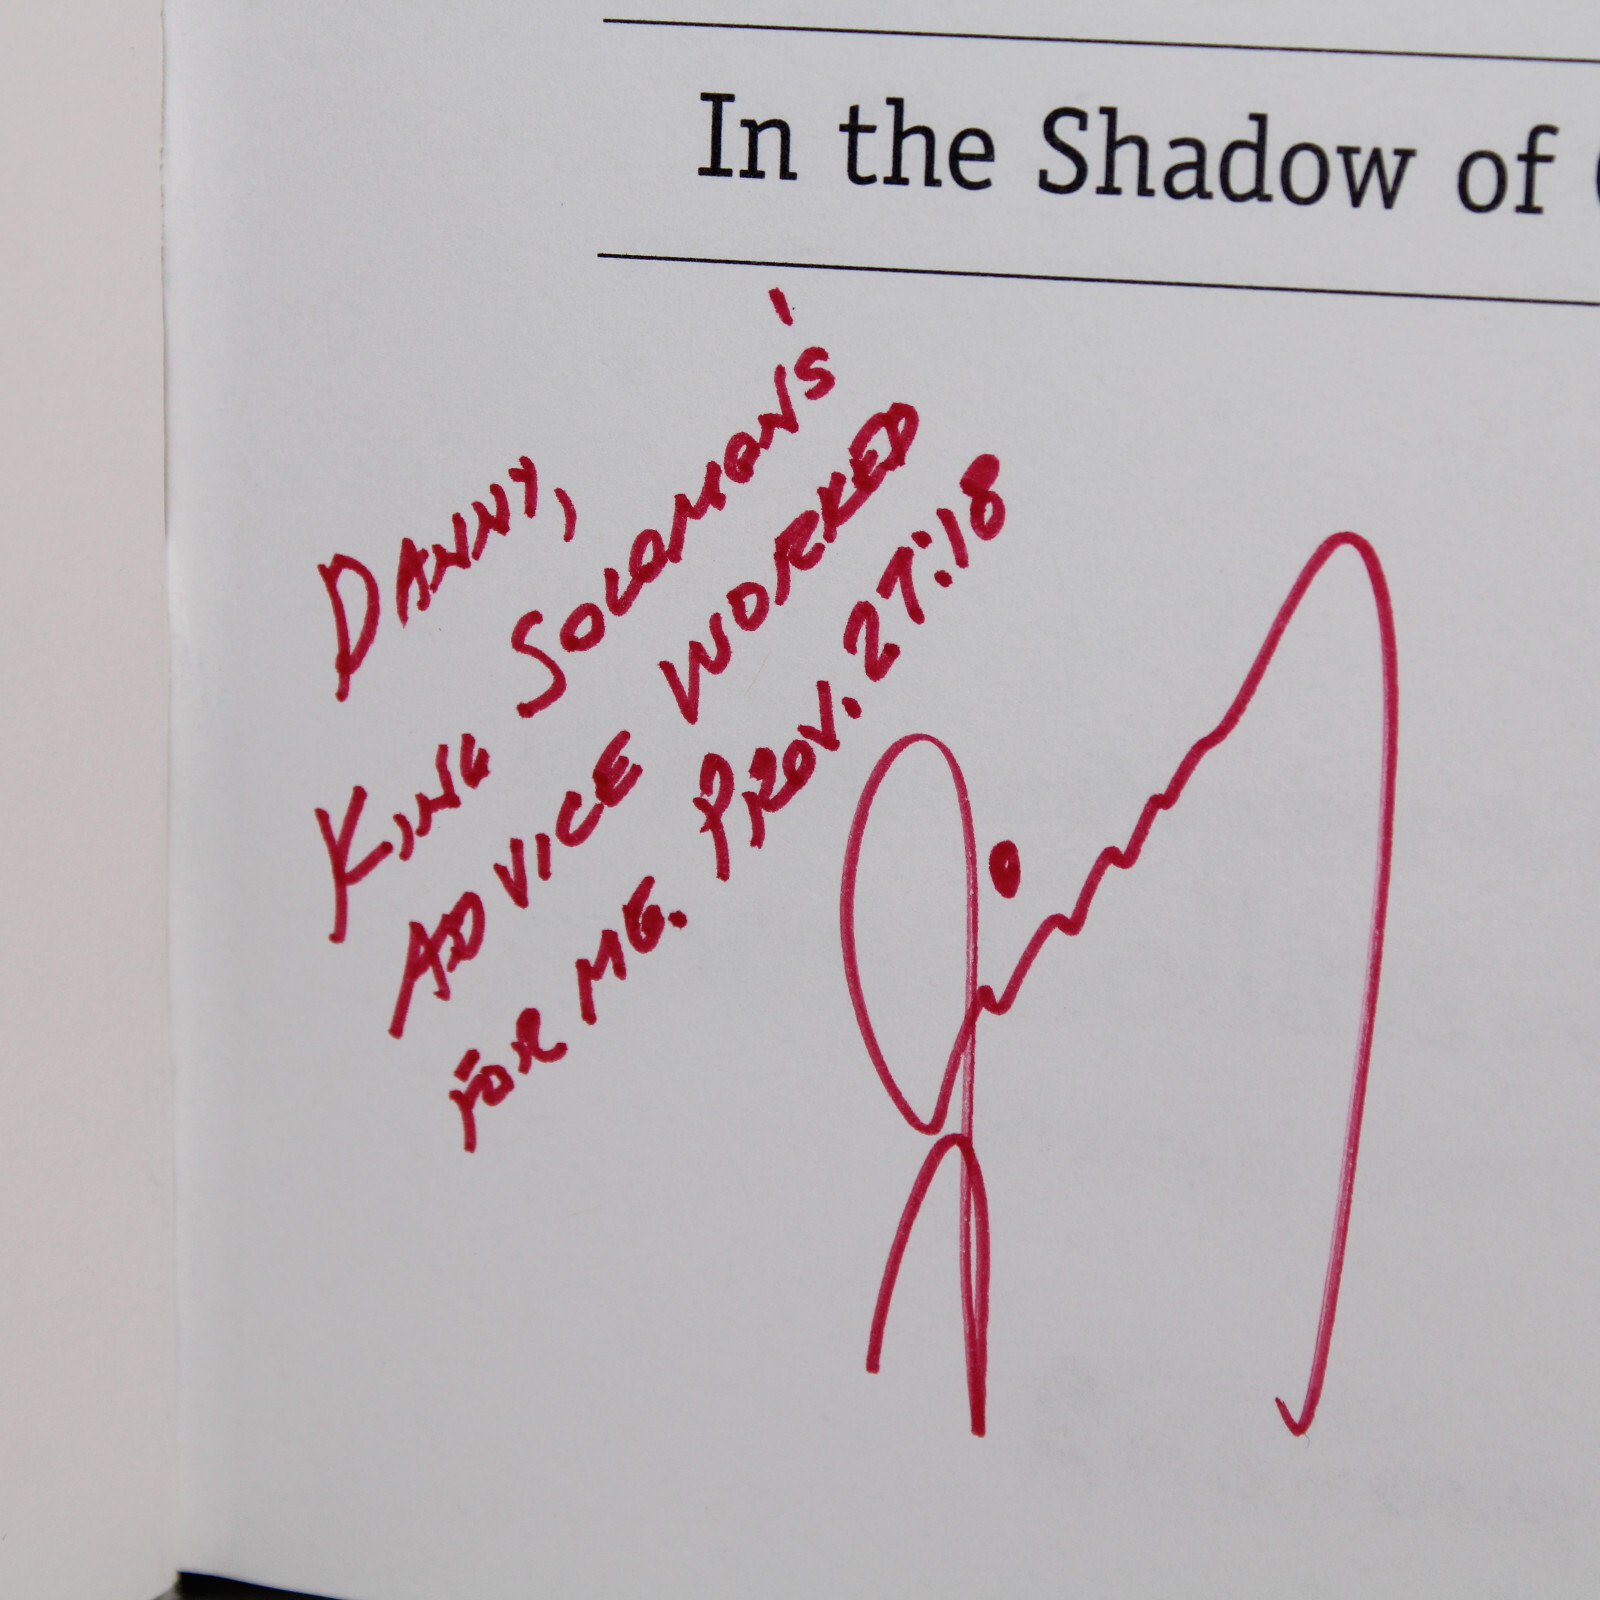 In the Shadow of
DANNY,
KING SOLOMON'S
ADVICE WORKED
FOR ME. PROV. 27:18
Jimmy